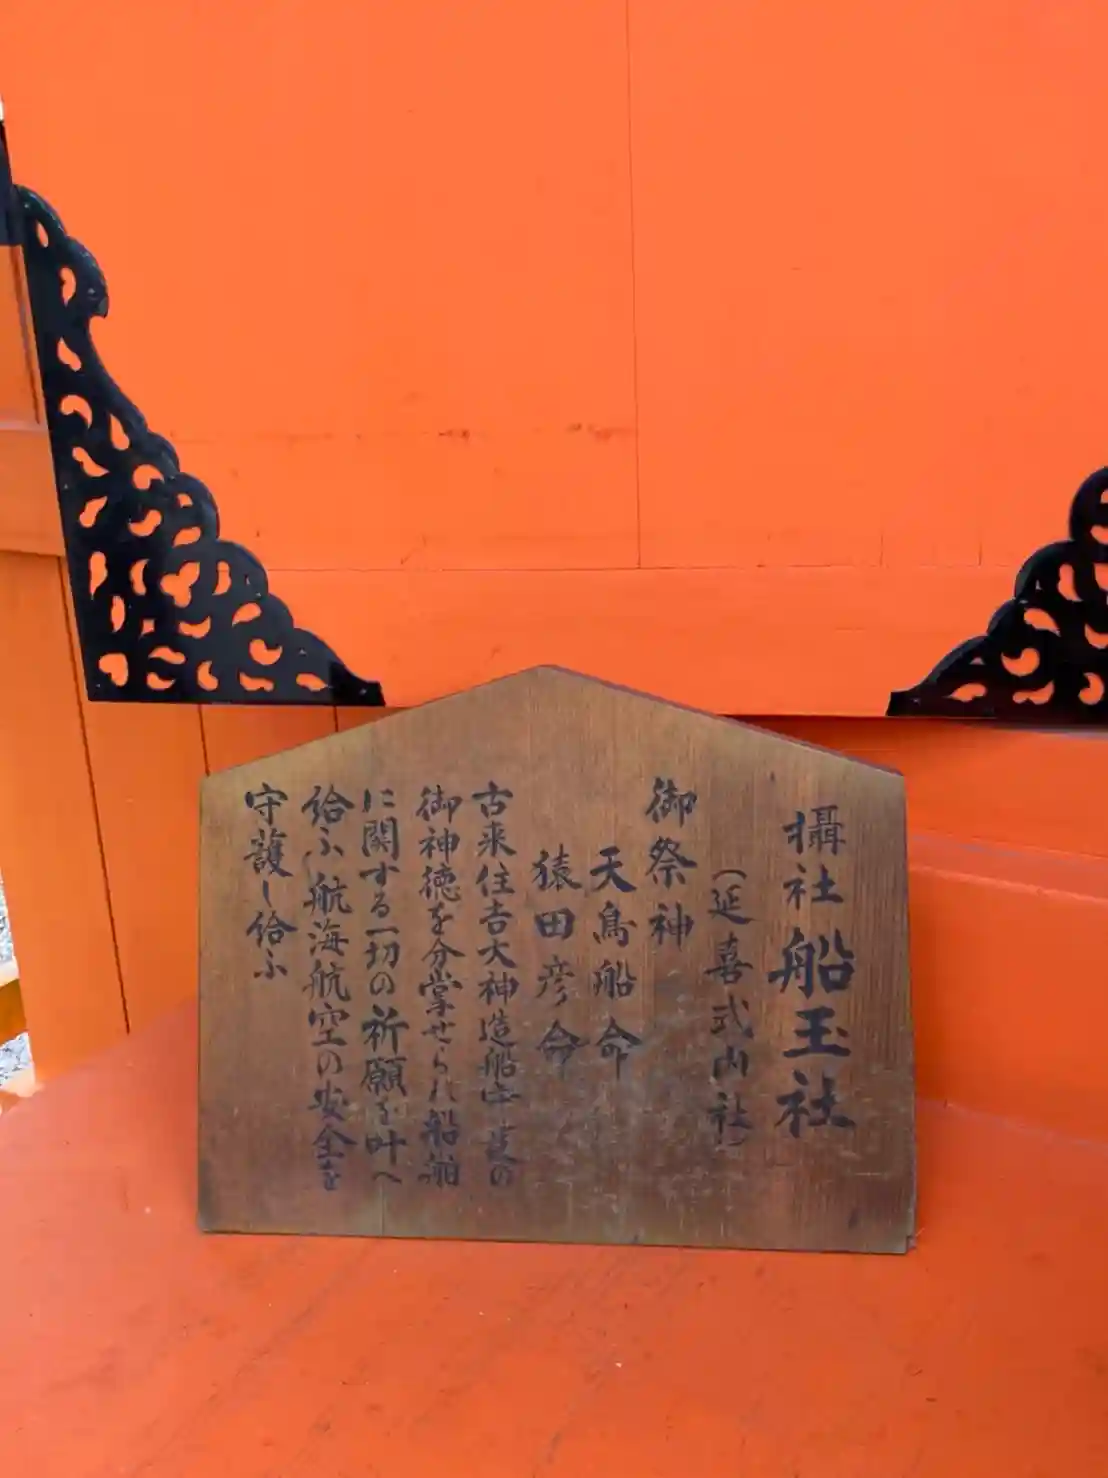 攝社 船玉社
（延喜式内社）
御祭神
天鳥船命
猿田彦命
古来住吉大神造船の
御神徳を分掌せられ船舶
に関する一切の祈願を叶へ
給ふ航海航空の安全を
守護し給ふ